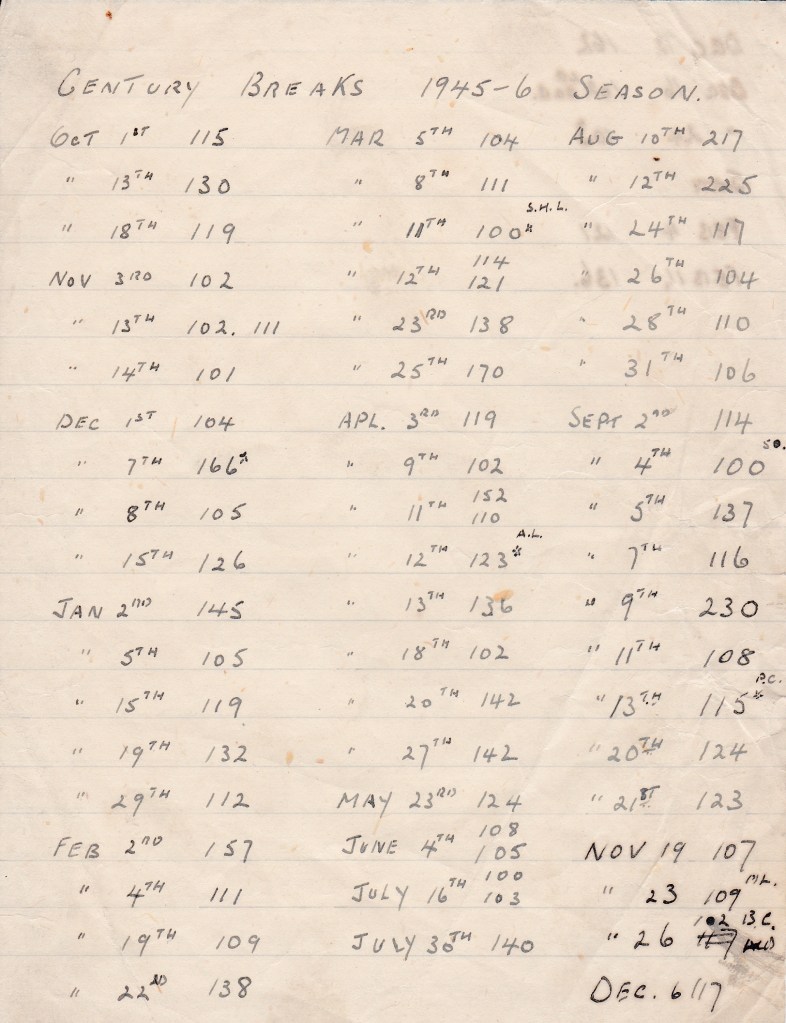 CENTURY BREAKS 1945-6 SEASON.
OCT 1ST 115
" 13TH 130
" 18TH 119
NOV 3RD 102
" 13TH 102. 111
" 14TH 101
DEC 1ST 104
" 7TH 166*
" 8TH 105
" 15TH 126
JAN 2ND 145
" 5TH 105
" 15TH 119
" 19TH 132
" 29TH 112
FEB 2ND 157
" 4TH 111
" 19TH 109
" 22ND 138
MAR 5TH 104
" 8TH 111
" 11TH 100* S.H.L.
" 12TH 114
121
" 23RD 138
" 25TH 170
APL. 3RD 119
" 9TH 102
" 11TH 152
110
" 12TH 123* A.L.
" 13TH 136
" 18TH 102
" 20TH 142
" 27TH 142
MAY 23RD 124
JUNE 4TH 108
105
JULY 16TH 100
103
JULY 30TH 140
AUG 10TH 217
" 12TH 225
" 24TH 117
" 26TH 104
" 28TH 110
" 31TH 106
SEPT 2ND 114
" 4TH 100 SO.
" 5TH 137
" 7TH 116
" 9TH 230
" 11TH 108
" 13TH 115* P.C.
" 20TH 124
" 21ST 123
NOV 19 107
" 23 109 M.L.
" 26 102 B.C.
DEC. 6 117